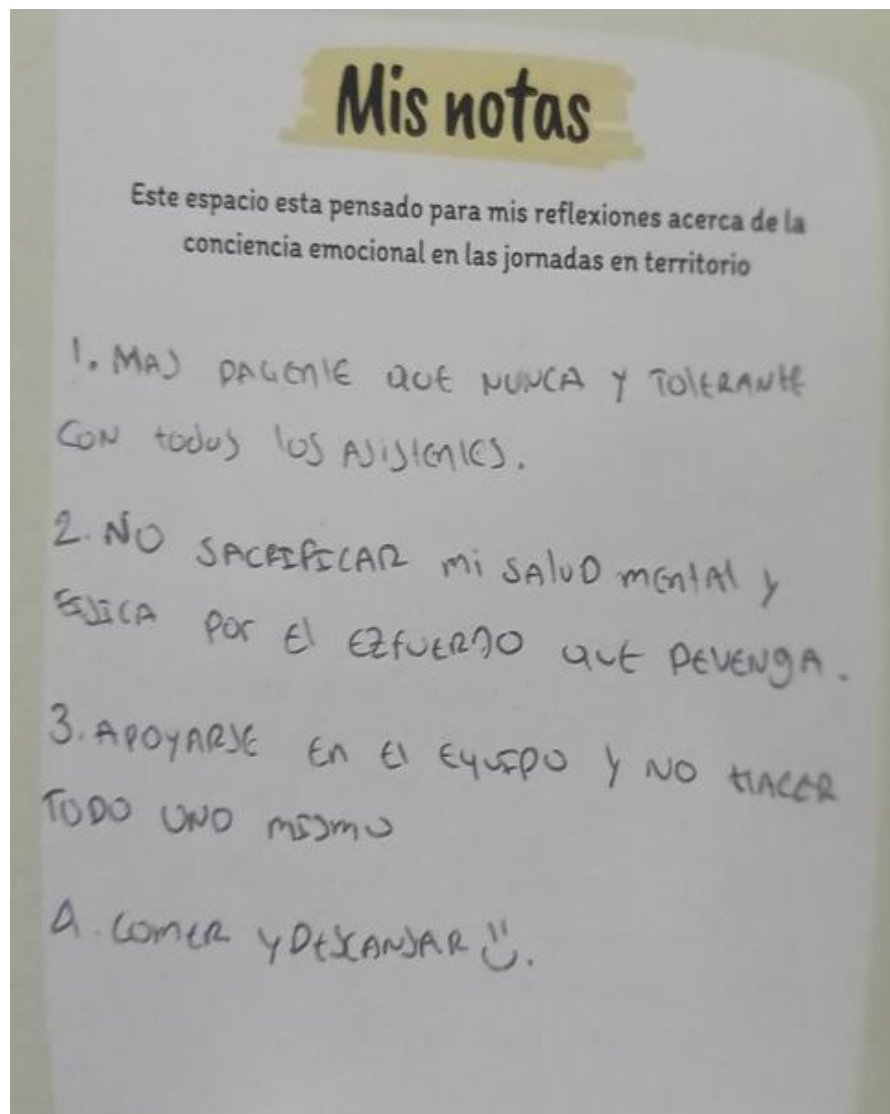 Mis notas
Este espacio esta pensado para mis reflexiones acerca de la
conciencia emocional en las jornadas en territorio
1. MAS PACIENTE QUE NUNCA Y TOLERANTE
CON todos los ASISTENTES.
2. NO SACRIFICAR mi SALUD mental y
FISICA por El EZFUERZO QUE DEVENGA.
3. APOYARSE En El EQUIPO Y NO HACER
TODO UNO MISMO
4. COMER Y DESCANSAR ü.